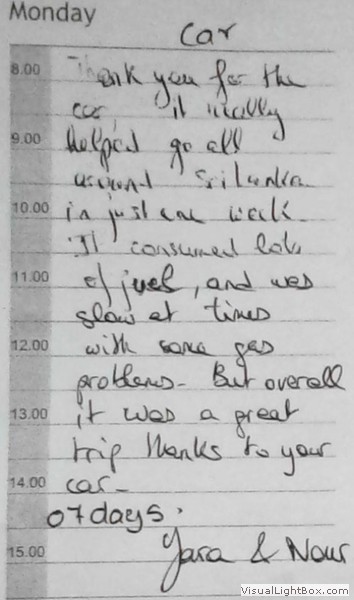 Monday
Car
8.00 Thank you for the
car, it really
9.00 helped go all
around Srilanka
10.00 in just one week.
It consumed lots
11.00 of fuel, and was
slow at times
12.00 with some gas
problems. But overall
13.00 it was a great
trip thanks to your
14.00 car.
07days.
15.00 Yara & Nour
VisualLightBox.com